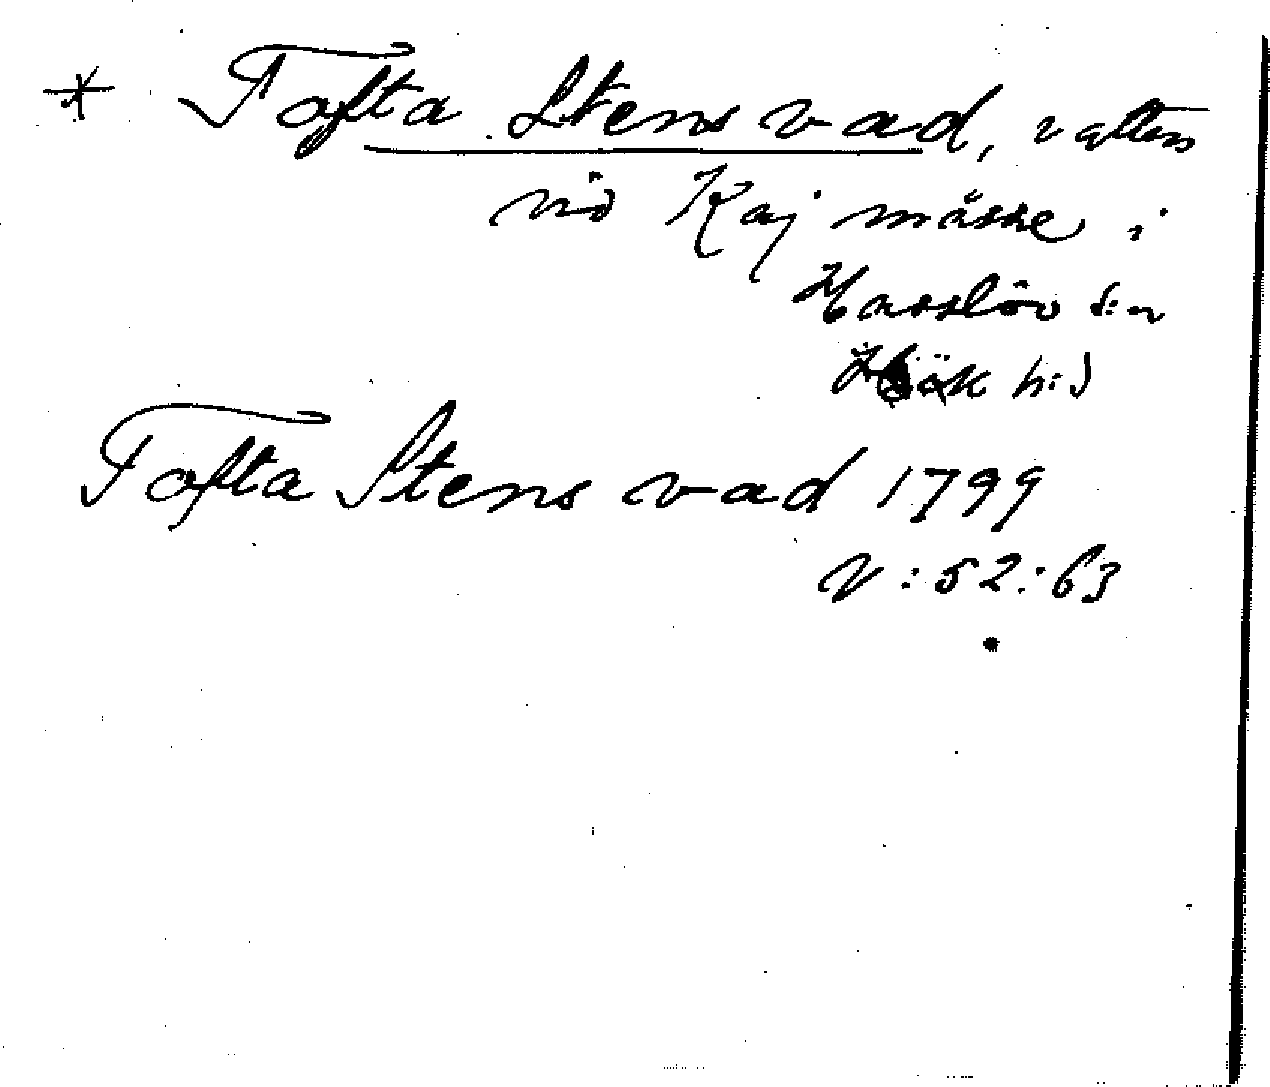 * Tofta Stens vad, vatten
vid Kaj måsse i
Hasslöv s:n
Hök h:d
Tofta Stens vad 1799
V:52:63